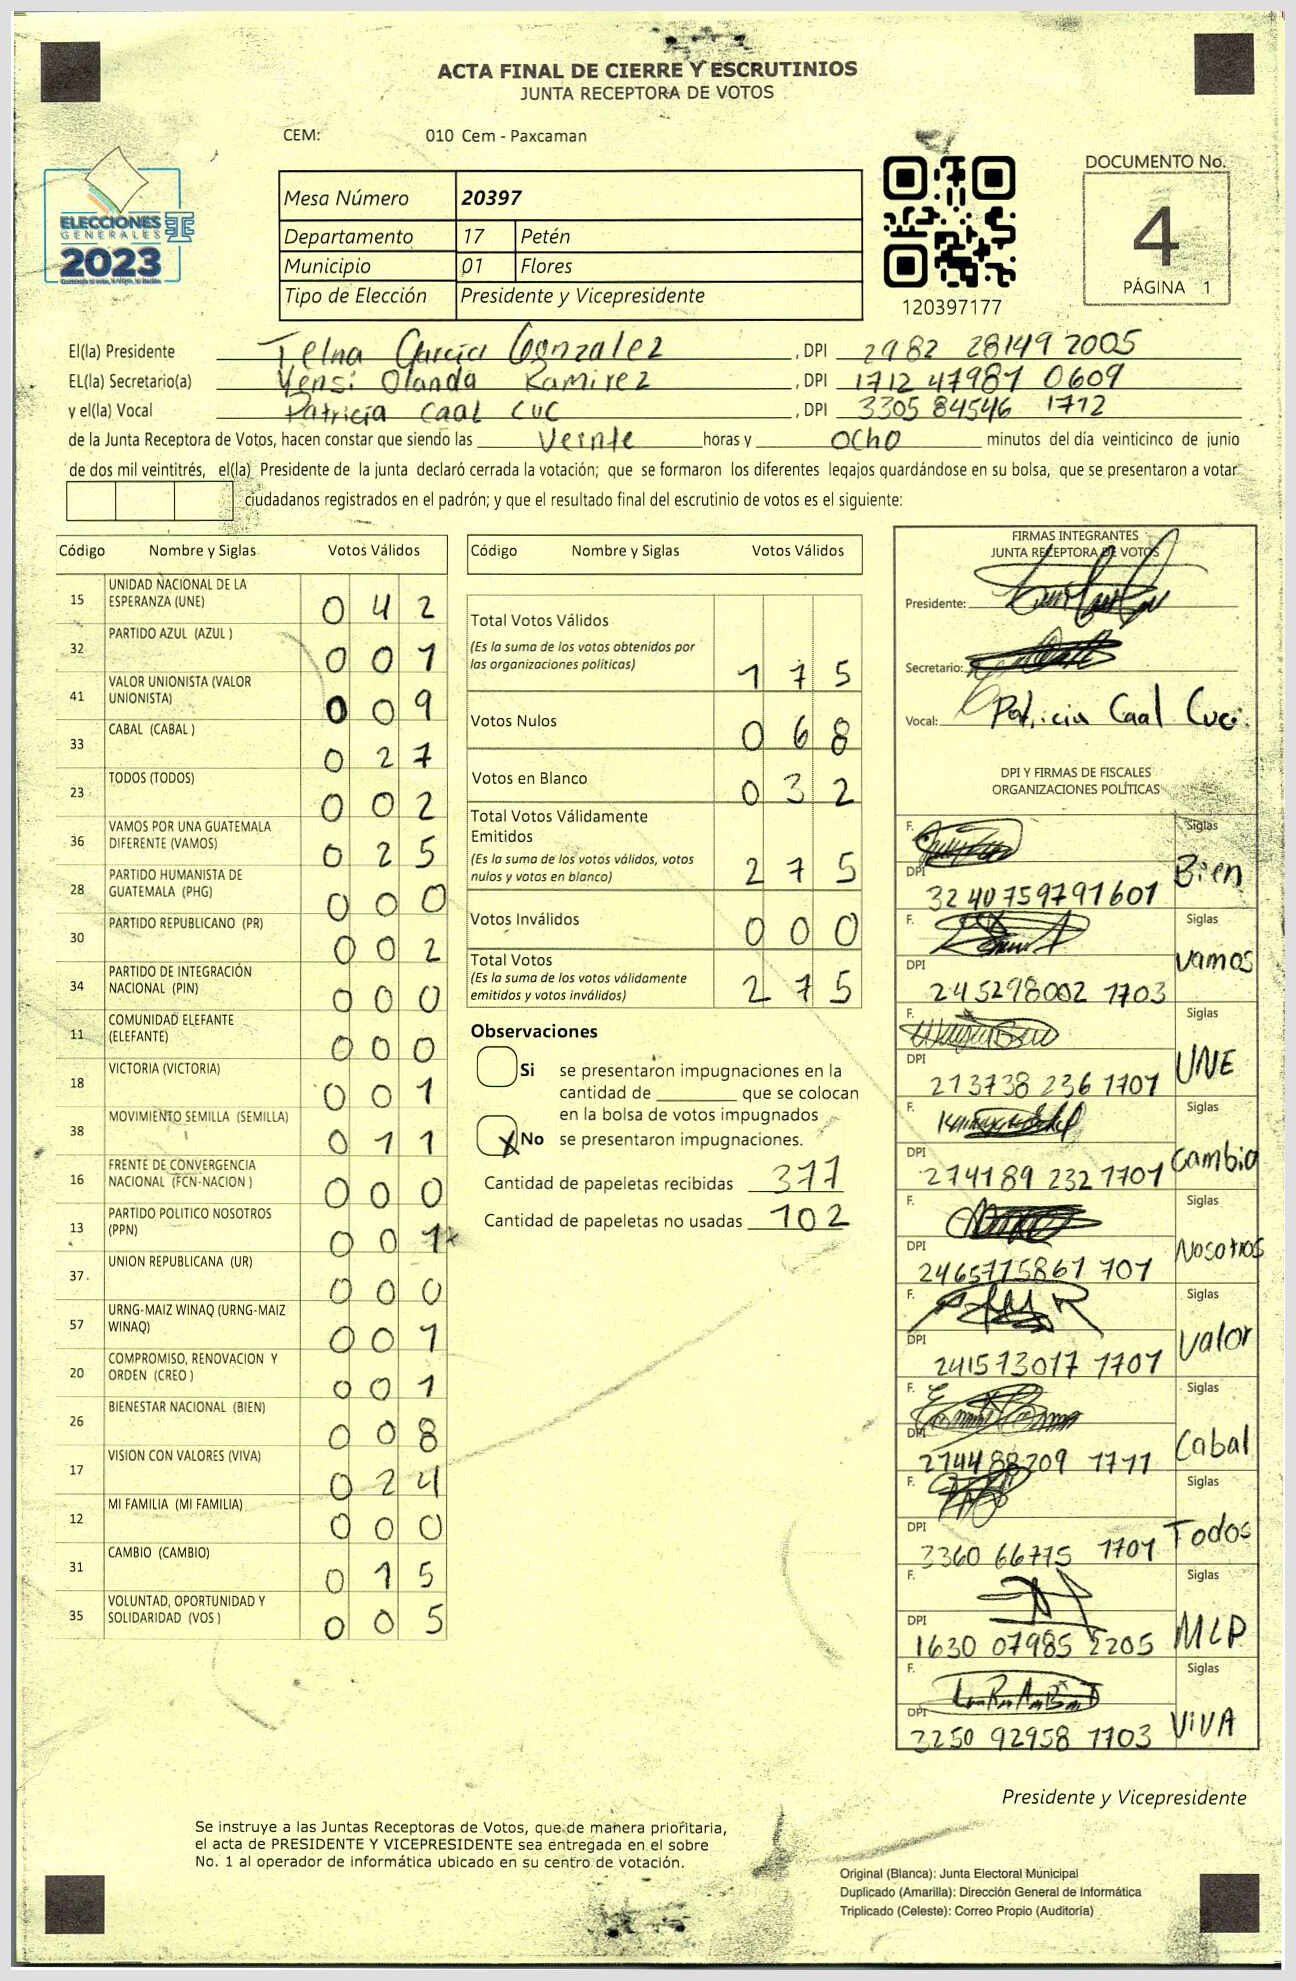 ACTA FINAL DE CIERRE Y ESCRUTINIOS
JUNTA RECEPTORA DE VOTOS
CEM: 010 Cem - Paxcaman
ELECCIONES
GENERALES
2023
Mesa Número 20397
Departamento 17 Petén
Municipio 01 Flores
Tipo de Elección Presidente y Vicepresidente
120397177
DOCUMENTO No.
4
PÁGINA 1
El(la) Presidente Telna García Gonzalez , DPI 2982 28149 2005
EL(la) Secretario(a) Yensi Olanda Ramirez , DPI 1712 47987 0609
y el(la) Vocal Patricia Caal Cuc , DPI 3305 84546 1712
de la Junta Receptora de Votos, hacen constar que siendo las veinte horas y ocho minutos del día veinticinco de junio
de dos mil veintitrés, el(la) Presidente de la junta declaró cerrada la votación; que se formaron los diferentes legajos guardándose en su bolsa, que se presentaron a votar
ciudadanos registrados en el padrón; y que el resultado final del escrutinio de votos es el siguiente:
Código Nombre y Siglas Votos Válidos
15 UNIDAD NACIONAL DE LA ESPERANZA (UNE) 0 4 2
32 PARTIDO AZUL (AZUL ) 0 0 1
41 VALOR UNIONISTA (VALOR UNIONISTA) 0 0 9
33 CABAL (CABAL ) 0 2 7
23 TODOS (TODOS) 0 0 2
36 VAMOS POR UNA GUATEMALA DIFERENTE (VAMOS) 0 2 5
28 PARTIDO HUMANISTA DE GUATEMALA (PHG) 0 0 0
30 PARTIDO REPUBLICANO (PR) 0 0 2
34 PARTIDO DE INTEGRACIÓN NACIONAL (PIN) 0 0 0
11 COMUNIDAD ELEFANTE (ELEFANTE) 0 0 0
18 VICTORIA (VICTORIA) 0 0 1
38 MOVIMIENTO SEMILLA (SEMILLA) 0 1 1
16 FRENTE DE CONVERGENCIA NACIONAL (FCN-NACION ) 0 0 0
13 PARTIDO POLITICO NOSOTROS (PPN) 0 0 1
37 UNION REPUBLICANA (UR) 0 0 0
57 URNG-MAIZ WINAQ (URNG-MAIZ WINAQ) 0 0 1
20 COMPROMISO, RENOVACION Y ORDEN (CREO ) 0 0 1
26 BIENESTAR NACIONAL (BIEN) 0 0 8
17 VISION CON VALORES (VIVA) 0 2 4
12 MI FAMILIA (MI FAMILIA) 0 0 0
31 CAMBIO (CAMBIO) 0 1 5
35 VOLUNTAD, OPORTUNIDAD Y SOLIDARIDAD (VOS ) 0 0 5
Código Nombre y Siglas Votos Válidos
Total Votos Válidos
(Es la suma de los votos obtenidos por
las organizaciones políticas) 1 7 5
Votos Nulos 0 6 8
Votos en Blanco 0 3 2
Total Votos Válidamente
Emitidos
(Es la suma de los votos válidos, votos
nulos y votos en blanco) 2 7 5
Votos Inválidos 0 0 0
Total Votos
(Es la suma de los votos válidamente
emitidos y votos inválidos) 2 7 5
Observaciones
Si se presentaron impugnaciones en la
cantidad de ________ que se colocan
en la bolsa de votos impugnados
X No se presentaron impugnaciones.
Cantidad de papeletas recibidas 377
Cantidad de papeletas no usadas 102
FIRMAS INTEGRANTES
JUNTA RECEPTORA DE VOTOS
Presidente:
Secretario:
Vocal: Patricia Caal Cuc
DPI Y FIRMAS DE FISCALES
ORGANIZACIONES POLÍTICAS
F. Siglas
DPI 3240759791601 Bien
F. Siglas
DPI 245298002 1703 vamos
F. Siglas
DPI 213738 236 1701 UNE
F. Siglas
DPI 274189 232 1701 Cambio
F. Siglas
DPI 2465775861 701 Nosotros
F. Siglas
DPI 241573017 1701 Valor
F. Siglas
DPI 2744 88209 1711 Cabal
F. Siglas
DPI 3360 66775 1701 Todos
F. Siglas
DPI 1630 07985 2205 MLP
F. Siglas
DPI 3250 92958 1703 VIVA
Presidente y Vicepresidente
Se instruye a las Juntas Receptoras de Votos, que de manera prioritaria,
el acta de PRESIDENTE Y VICEPRESIDENTE sea entregada en el sobre
No. 1 al operador de informática ubicado en su centro de votación.
Original (Blanca): Junta Electoral Municipal
Duplicado (Amarilla): Dirección General de Informática
Triplicado (Celeste): Correo Propio (Auditoría)